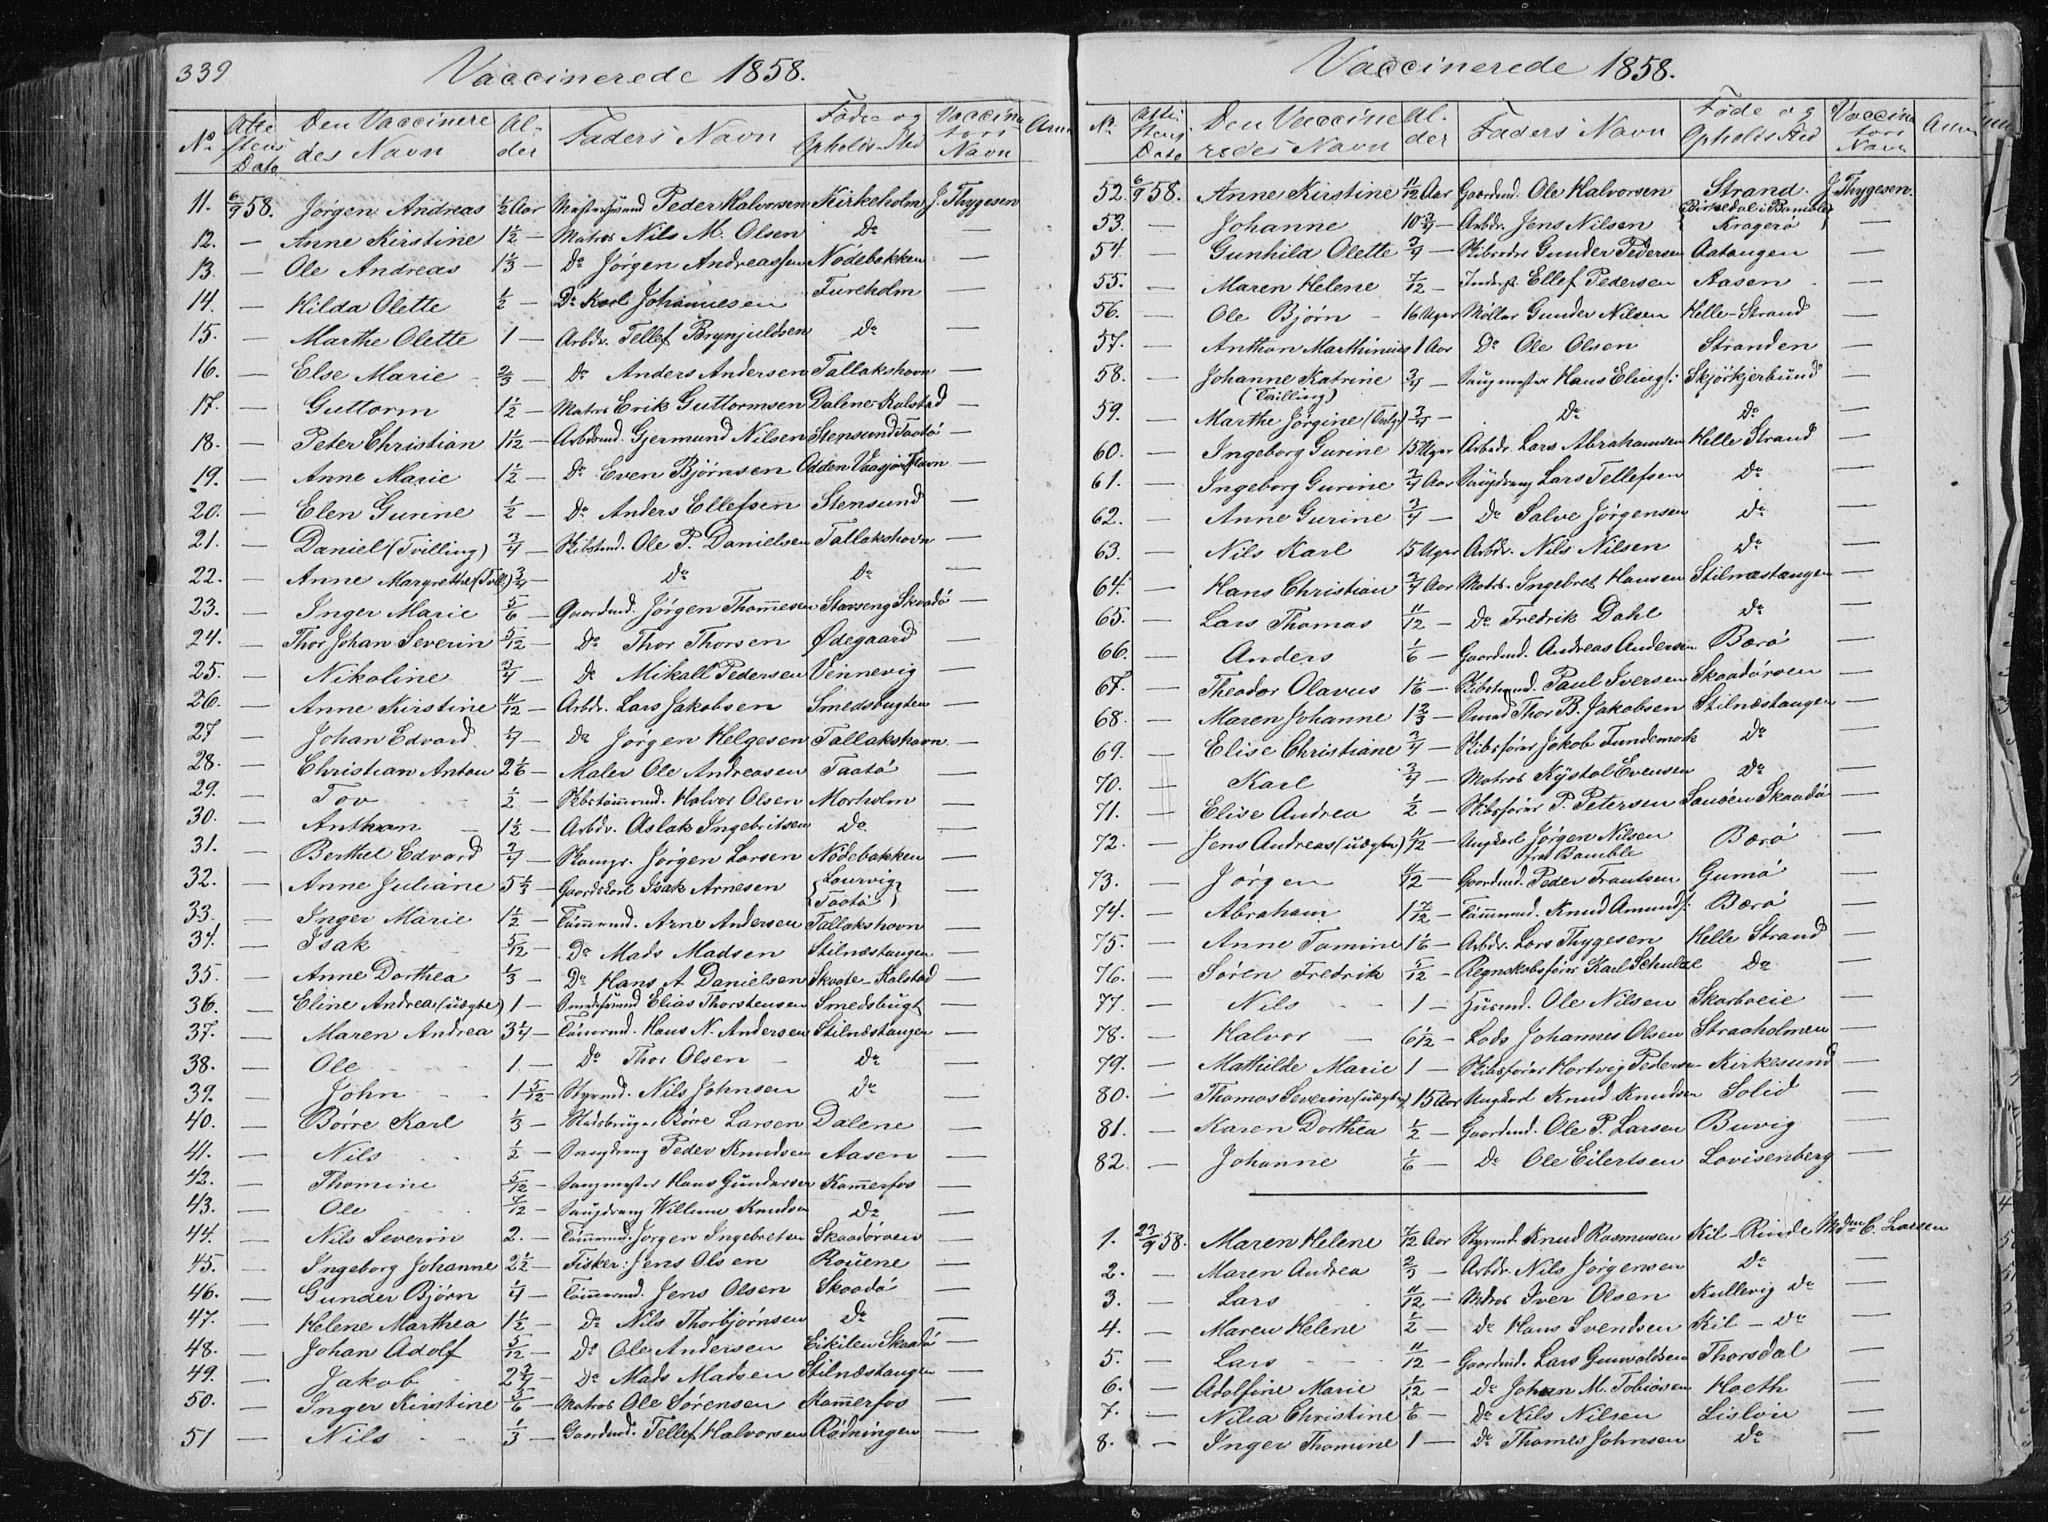 339
Vaccinerede 1858.
No Attestens Dato Den Vaccineredes Navn Alder Faders Navn Føde og Opholds-Sted Vaccinatørs Navn Anm
11. 6/9 58. Jørgen Andreas 1/2 Aar Peder Halvorsen Kirkeholm J. Thygesen
12. — Anne Kirstine 1 1/2 — Matros Nils M. Olsen Do —
13. — Ole Andreas 1 1/3 — Do Jørgen Andreassen Nødebakken —
14. — Hilda Olette 1/2 — Do Karl Johannesen Fureholm —
15. — Marthe Olette 1 — Arbdr. Tellef Brynjuldsen Do —
16. — Else Marie 2/3 — Do Anders Andersen Tallakshavn —
17. — Guttorm 1 1/2 — Matros Erik Guttormsen Dalene-Kalstad —
18. — Peter Christian 1 1/12 — Arbdsmd. Gjermund Nilsen Stensund Taatø —
19. — Anne Marie 1 1/2 — Do Even Bjørnsen Odden —
20. — Elen Gunne 1/2 — Do Anders Ellefsen Stensund —
21. — Daniel (Tvilling) 3/4 — Skibstmd. Ole P. Danielsen Tallakshavn —
22. — Anne Margrethe (Tvill.) 3/4 — Do Do —
23. — Inger Marie 5/6 — Gaardmd. Jørgen Thommesen Stavseng Skaadø —
24. — Thor Johan Severin 5/12 — Do Thor Thorsen Ødegaard —
25. — Nikoline 3/4 — Do Mikall Pedersen Vennevig —
26. — Anne Kirstine 11/12 — Arbdr. Lars Jakobsen Smedsbugten —
27 — Johan Edvard 1/4 — Do Jørgen Helgesen Tallakshavn —
28. — Christian Anton 2 1/6 — Maler Ole Andreasen Taatø —
29. — Tov 1/2 — Skibstømmd. Halvor Olsen Morholm —
30. — Anthon 1 1/2 — Arbdr. Aslak Ingebritsen Do —
31. — Berthel Edvard 3/4 — Jørgen Larsen Nødebakken —
32. — Anne Juliane 5 1/3 — Gaardskarl Isak Arnesen {Laurvig Taatø} —
33. — Inger Marie 1 1/2 — Tømmmd. Arne Andersen Tallakshavn —
34. — Isak 5/12 — Do Mads Madsen Stilnæstangen —
35. — Anne Dorthea 1/3 — Do Hans A Danielsen Skvate-Kalstad —
36. — Eline Andrea (uægte) 1 — Elias Thorstensen Smedsbugt —
37. — Maren Andrea 3 1/4 — Tømmermd. Hans N. Andersen Stilnæstangen —
38. — Ole 1. — Do Thor Olsen — Do —
39. — John 1 5/12 — Styrmd. Nils Johnsen Do —
40. — Børre Karl 1/3 — Børre Larsen Dalene —
41. — Nils 1/2 — Saugdreng Peder Knudsen Aasen —
42. — Thomine 5/12 — Saugmester Hans Gundersen Kammerfos —
43. — Ole 7/12 — Saugdreng Willum Knudsen Do —
44. — Nils Severin 2. — Tømmermd. Jørgen Ingebretsen Skaadørøen —
45. — Ingeborg Johanne 2 1/2 — Fisker: Jens Olsen Rouene —
46. — Gunder Bjørn 1/4 — Tømmermd. Jens Olsen Skaadø —
47. — Helene Marthea 1 1/2 — Do Nils Thorbjørnsen Do —
48. — Johan Adolf 5/12 — Do Ole Andersen Eikilen Skaadø —
49. — Jakob 2 3/4 — Do Mads Madsen Stilnæstangen —
50. — Inger Kirstine 5/6 — Matros Ole Sørensen Kammerfos —
51 — Nils 1/3 — Gaardmd. Tellef Halvorsen Rødningen —
Vaccinerede 1858.
No. Attestens Dato Den Vaccineredes Navn Alder Faders Navn Føde og Opholds Sted Vaccinatørs Navn Anm
52. 6/9 58. Anne Kirstine 11/12 Aar Gaardmd. Ole Halvorsen Strand. J. Thygesen.
53. — Johanne 10 3/4 — Arbdr. Jens Nilsen {Birkedal i Bamble Kragerø} —
54. — Gunhild Olette 3/4 — Gunder Pedersen Aatangen —
55. — Maren Helene 7/12 — Inderst. Ellef Pedersen Aasen —
56. — Ole Bjørn — 16 Uger Møller Gunder Nilsen Helle-Strand —
57. — Anthon Marthinius 1 Aar Do Ole Olsen Stranden —
58. — Johanne Katrine (Tvilling) 3/4 — Saugmester Hans Elings: Skjørkjerbund —
59. — Marthe Jørgine (Tvilg.) 3/4 — Do Do —
60. — Ingeborg Gurine 15 Uger Arbdr. Lars Abrahamsen Helle Strand —
61. — Ingeborg Gurine 3/4 Aar Saugdreng Lars Tellefsen Do —
62. — Anne Gurine 3/4 — Do Salve Jørgensen Do —
63. — Nils Karl 15 Uger Arbdr. Nils Nilsen Do —
64. — Hans Christian 3/4 Aar Matrs. Ingebret Hansen Stilnæstangen —
65. — Lars Thomas 11/12 — Do Fredrik Dahl Do —
66. — Anders 1/6 — Gaardmd. Andreas Andersen Bærø —
67. — Theodor Olavus 1 1/6 — Paul Iversen Skaadørøen —
68. — Maren Johanne 1 2/3 — Smed Thor B. Jakobsen Stilnæstangen —
69. — Elise Christiane 3/4 — Skibsfører Jakob Tundemark Do —
70. — Karl 3/4 — Matros Kjstol Evensen Do —
71. — Elise Andrea 1/2 — Skibsfører P. Petersen Sauøen Skaadø —
72. — Jens Andreas (uægte) 11/12 — Ungkarl Jørgen Nilsen fra Bamble Bærø —
73. — Jørgen 11/12 — Gaardmd. Peder Frantsen Gumø —
74. — Abraham 1 7/12 — Tømmermd. Knud Amunds: Bærø —
75. — Anne Tomine 1 1/6 — Arbdr. Lars Thygesen Helle Strand —
76. — Søren Fredrik 5/12 — Regnskabsfører Karl Schultze Do —
77 — Nils 1 — Husmd. Ole Nilsen Skarboeie —
78. — Halvor — 6 1/2 — Lods Johannes Olsen Straaholmen —
79. — Mathilde Marie 1 — Skibsfører Hartvig Pedersen Kirkesund —
80. — Thomas Severin (uægte) 15 Aar Ungkarl Knud Knudsen Solid —
81. — Karen Dorthea 1/2 — Gaardmd. Ole P. Larsen Buvig —
82. — Johanne 1/6 — Do Ole Eilertsen Lovisenberg —
1. 23/9 58. Maren Helene 7/12 Aar Styrmd. Knud Rasmussen Kil-Rinde C. Larsen
2. — Maren Andrea 2/3 — Arbdr. Nils Jørgensen Do —
3. — Lars 11/12 — Matros Iver Olsen Kullevig Do —
4. — Maren Helene 1/2 — Do Hans Svendsen Kil — Do —
5. — Lars 11/12 — Gaardmd. Lars Gunvaldsen Thorsdal —
6. — Adolfine Marie 1/12 — Do Johan M. Tobiasen Hoeth —
7. — Nilia Christine 1/6 — Do Nils Nilsen Lisløu —
8. — Inger Thomine 1 — Do Thomes Johnsen Do —